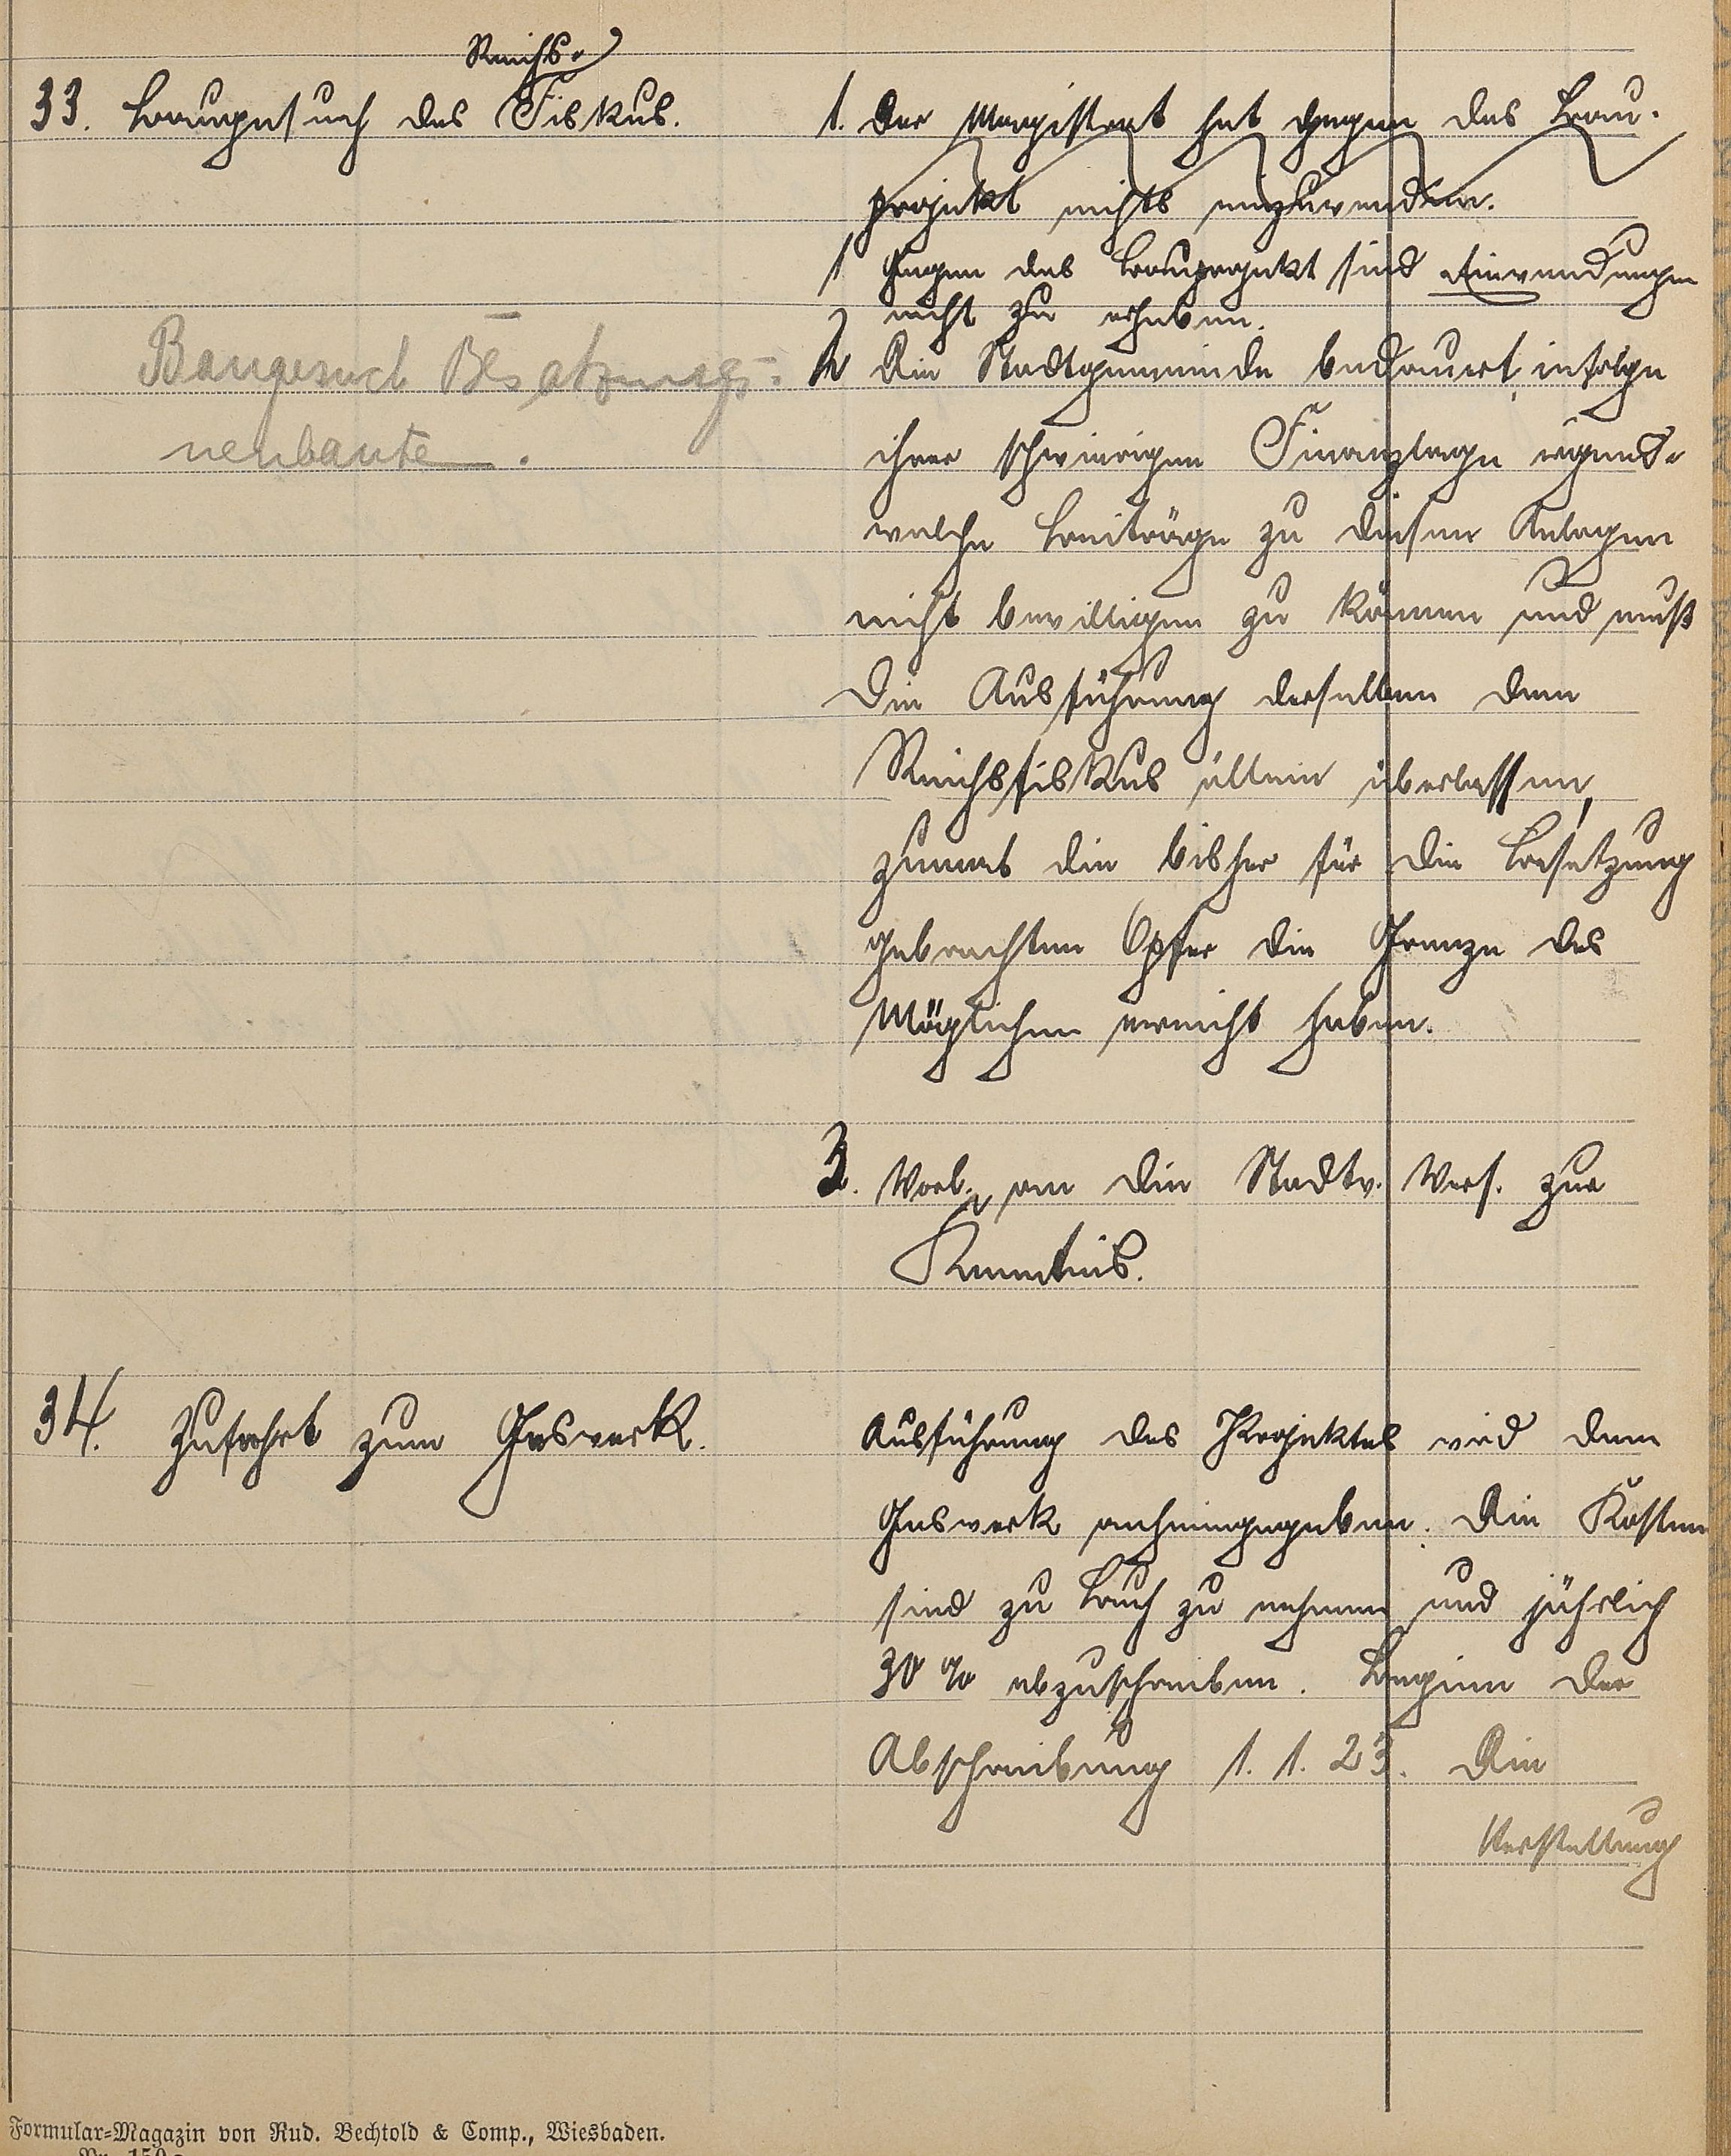 Reichs-
33. Baugesuch des Fiskus.
1. Der Magistrat hat gegen das Bau-
projekt nichts einzuwenden.
1 Gegen das Bauprojekt sind Einwendungen
nicht zu erheben.
Baugesuch Besatzungs-
neubauten.
2 Die Stadtgemeinde bedauert, infolge
ihrer schwierigen Finanzlage irgend-
welche Beiträge zu diesen Anlagen
nicht bewilligen zu können und muß
die Ausführung derselben dem
Reichsfiskus allein überlassen,
zumal die bisher für die Besetzung
gebrachten Opfer die Grenze des
Möglichen erreicht haben.
3. Vorl. an die Stadtv. Vers. zur
Kenntnis.
34. Zufahrt zum Gaswerk.
Ausführung des Projektes wird dem
Gaswerk anheimgegeben. Die Kosten
sind zu Buch zu nehmen und jährlich
30 % abzuschreiben. Beginn der
Abschreibung 1. 1. 23. Die
Herstellung
Formular-Magazin von Rud. Bechtold & Comp., Wiesbaden.